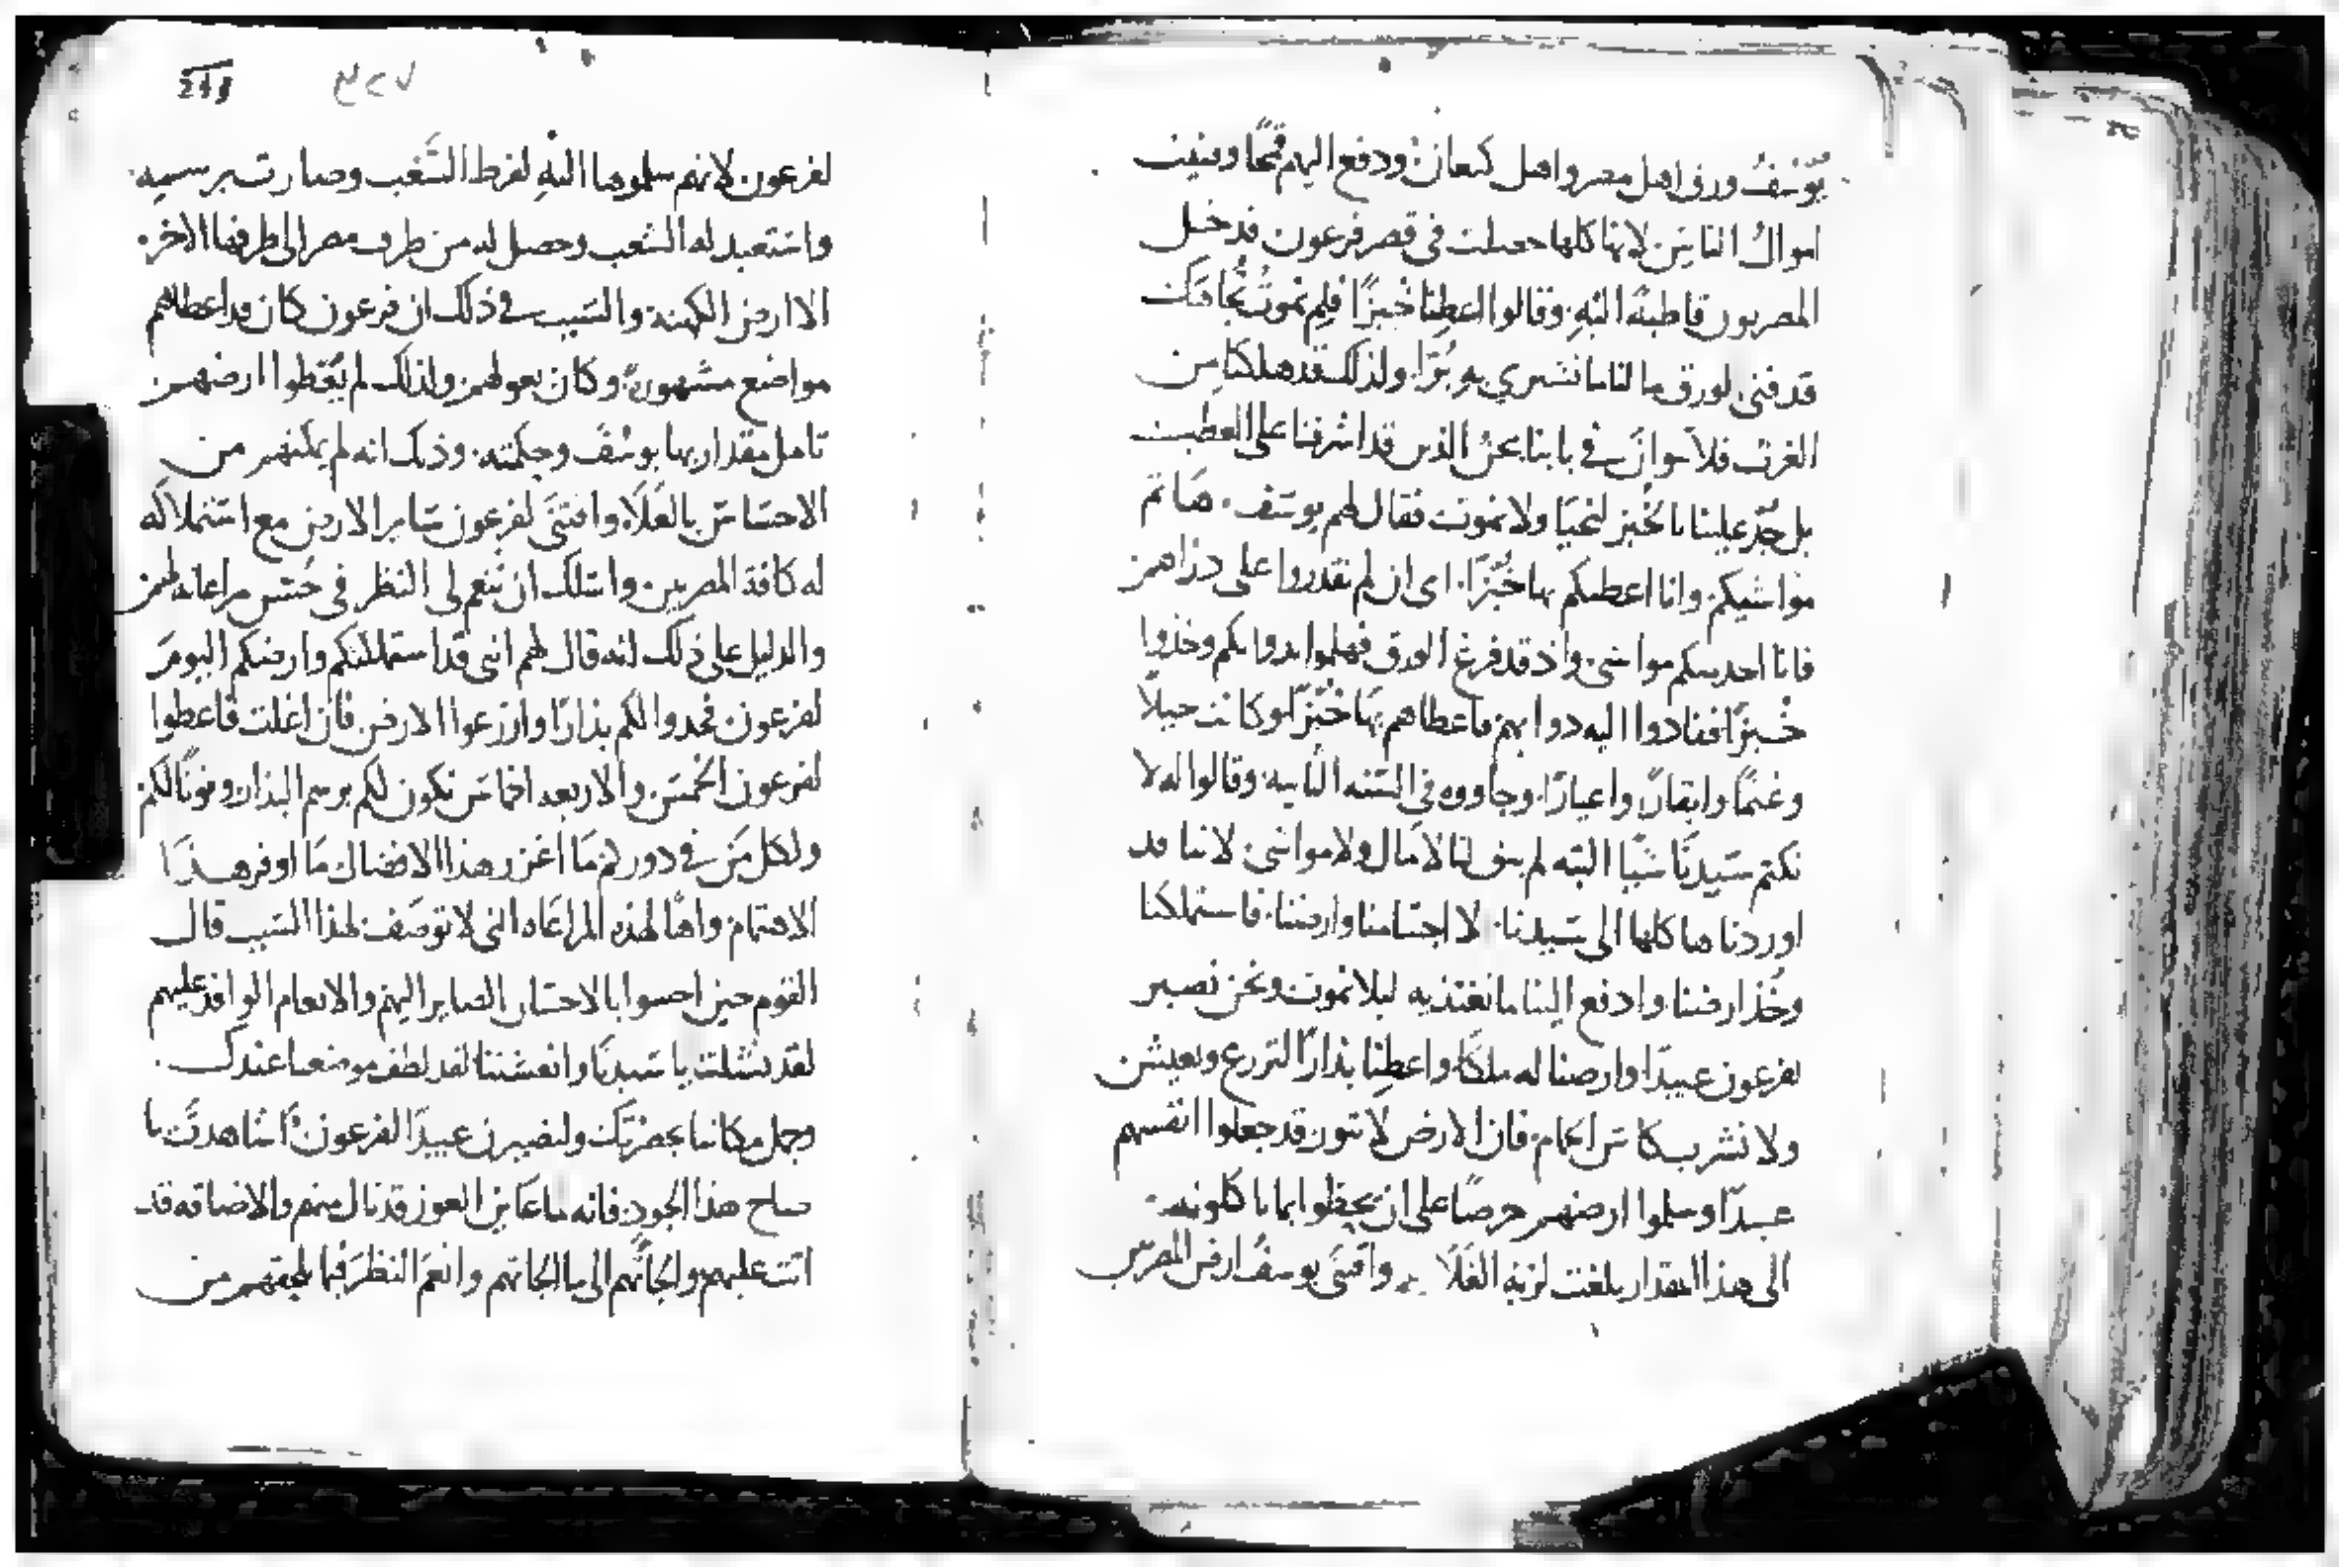 يوسف ورق اهل مصر واهل كنعان ودفع اليهم قمحًا وفنيت
اموال الناس لانها كلها حصلت في قصر فرعون فدخل
المصريون قاطبة اليه وقالوا اعطنا خبزًا فلم نموت تجاهك
قد فني لورق ما لنا ما نشري به بُرّا ولذلك قد هلكنا من
بل جُد علينا بالخبز لنحيا ولا نموت فقال لهم يوسف هاتم
مواشيكم وانا اعطيكم بها خبزًا اي ان لم تقدروا على دراهم
فانا اخذ منكم مواشي واذ قد فرغ الورق فهلموا بدوابكم وخذوا
خبزًا فقادوا اليه دوابهم فاعطاهم بها خبزًا لو كانت خيلاً
وغنمًا وابقارً واعيارًا وجاووه في السنه الثانيه وقالوا له لا
نكتم سيدنا شيا البته لم يبق لنا لا مال ولا مواشي لاننا قد
اوردناها كلها الى سيدنا لا اجسامنا وارضنا فاستملكنا
وخذ ارضنا وادفع الينا ما نغتذيه ليلا نموت ونحن نصير
لفرعون عبيدًا وارضنا له ملكًا واعطنا بذارًا لنزرع ونعيش
ولا نشرب كاس الحمام فان الارض لا تبور قد جعلوا انفسهم
عبيدًا وسلموا ارضهم حرصًا على ان يحظوا بما ياكلونه
الى هذا المقدار بلغت لزبة الغلا واقتنى يوسف ارض المصريين
لفرعون لانهم سلموها اليه لفرط السغب وصارت برسمه
واستعبد له الشعب وحصل له من طرف مصر الى طرفها الاخر
الا ارض الكهنه والسبب في ذلك ان فرعون كان قد اعطاهم
مواضع مشهوره وكان يعولهم ولذلك لم يُعطوا ارضهم
تامل مقدار بها يوسف وحكمته وذلك انه لم يمكنهم من
الاحساس بالغلاء واقتنى لفرعون ساير الارض مع استملاكه
له كافة المصريين واسلك ان تنعم لي النظر في حسن مراعاته لهم
والدليل على ذلك انه قال لهم انني قد استملكتكم وارضكم اليوم
لفرعون فخدوا لكم بذارًا وازرعوا الارض فان اغلت فاعطوا
لفرعون الخمس والاربعه اخماس تكون لكم برسم البذار وقوتًا لكم
ولكل من في دوركم ما اغزر هذا الافضال ما اوفر هذا
الاهتمام واهًا لهذه المراعاه التي لا توصف لهذا السبب قال
القوم حين احسوا بالاحسان الصاير اليهم والانعام الوافد عليهم
لقد نشلتنا يا سيدنا وانعشتنا لقد لطف موضعنا عندك
وجمل مكاننا بحضرتك ولنصيرن عبيدًا لفرعون اشاهدت يا
صاح هذا الجود فانه لما عاين العوز قد نال منهم والاضاقه قد
اتت عليهم والجاتهم الى ما الجاتهم وانعم النظر فيما لحقهم من